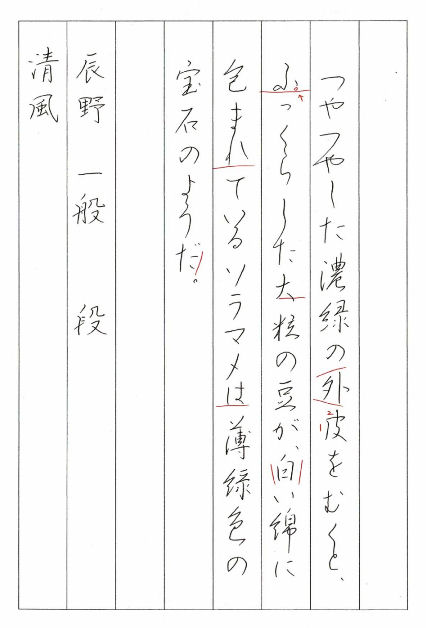 つやつやした濃緑の外皮をむくと、
ふっくらした大粒の豆が、白い綿に
包まれているソラマメは薄緑色の
宝石のようだ。
辰野 一般 段
清風